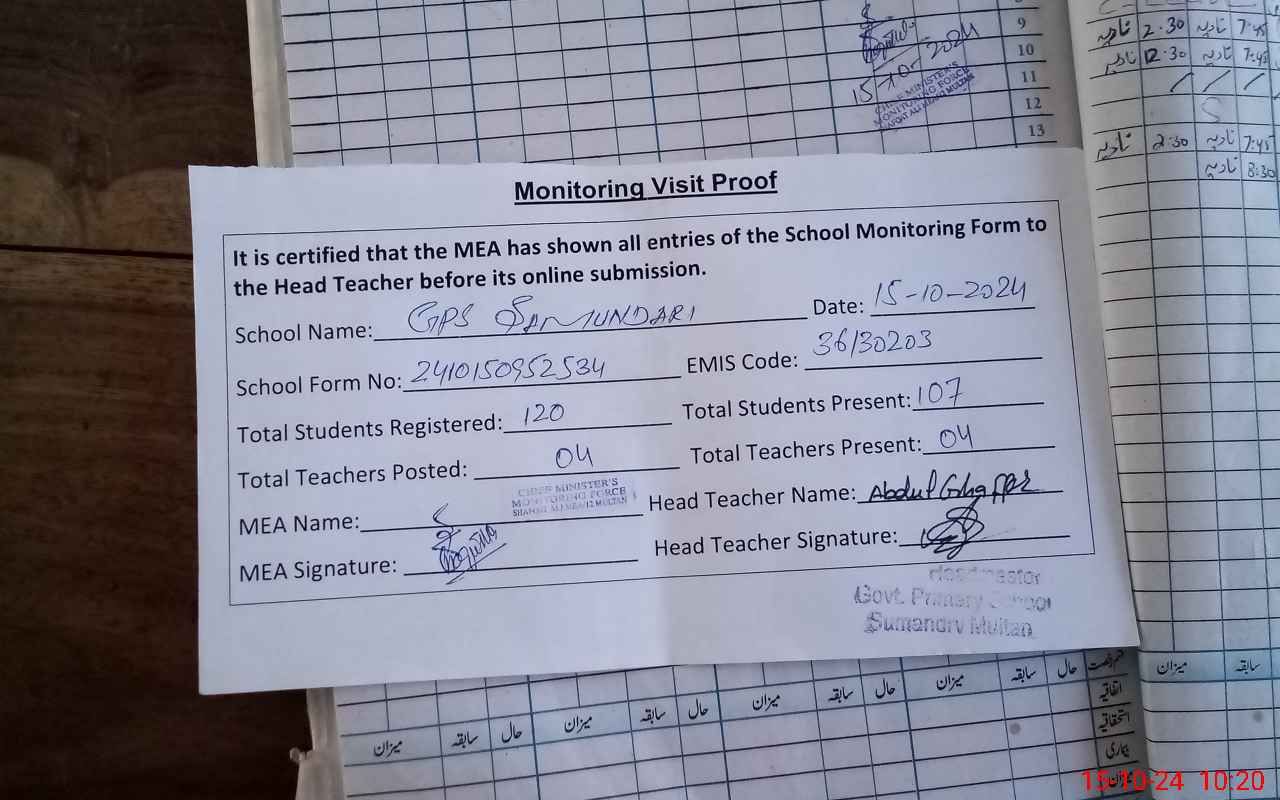 9
10
11
12
13
15-10-2024
CHIEF MINISTER'S
MONITORING FORCE
نادیہ 2:30 نادیہ 7:45
نادیہ 12:30 نادیہ 7:45
نادیہ 2:30 نادیہ 7:45
نادیہ 8:30
Monitoring Visit Proof
It is certified that the MEA has shown all entries of the School Monitoring Form to
the Head Teacher before its online submission.
School Name: GPS SAMUNDARI Date: 15-10-2024
School Form No: 2410150952534 EMIS Code: 36130203
Total Students Registered: 120 Total Students Present: 107
Total Teachers Posted: 04 Total Teachers Present: 04
MEA Name: CHIEF MINISTER'S
MONITORING FORCE
Head Teacher Name: Abdul Ghaffar
MEA Signature: Head Teacher Signature:
Headmaster
Govt. Primary School
Sumandry Multan
میزان سابقہ حال میزان سابقہ حال میزان سابقہ حال میزان سابقہ حال میزان سابقہ
اتفاقیہ
استحقاقیہ
بیماری
میزان
15-10-24 10:20